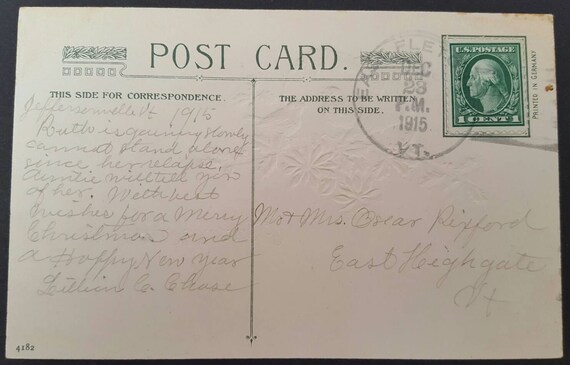 POST CARD.
THIS SIDE FOR CORRESPONDENCE.
THE ADDRESS TO BE WRITTEN
ON THIS SIDE.
DEC
29
P.M.
1915
VT.
U.S. POSTAGE
1 CENT 1
PRINTED IN GERMANY
Jeffersonville Vt 1915
Ruth is gaining slowly
cannot stand alone
since her relapse.
Auntie will tell you
of her. With best
wishes for a Merry
Christmas and
a Happy New Year
Lillian C. Chase
Mr & Mrs. Oscar Rixford
East Highgate
Vt
4182